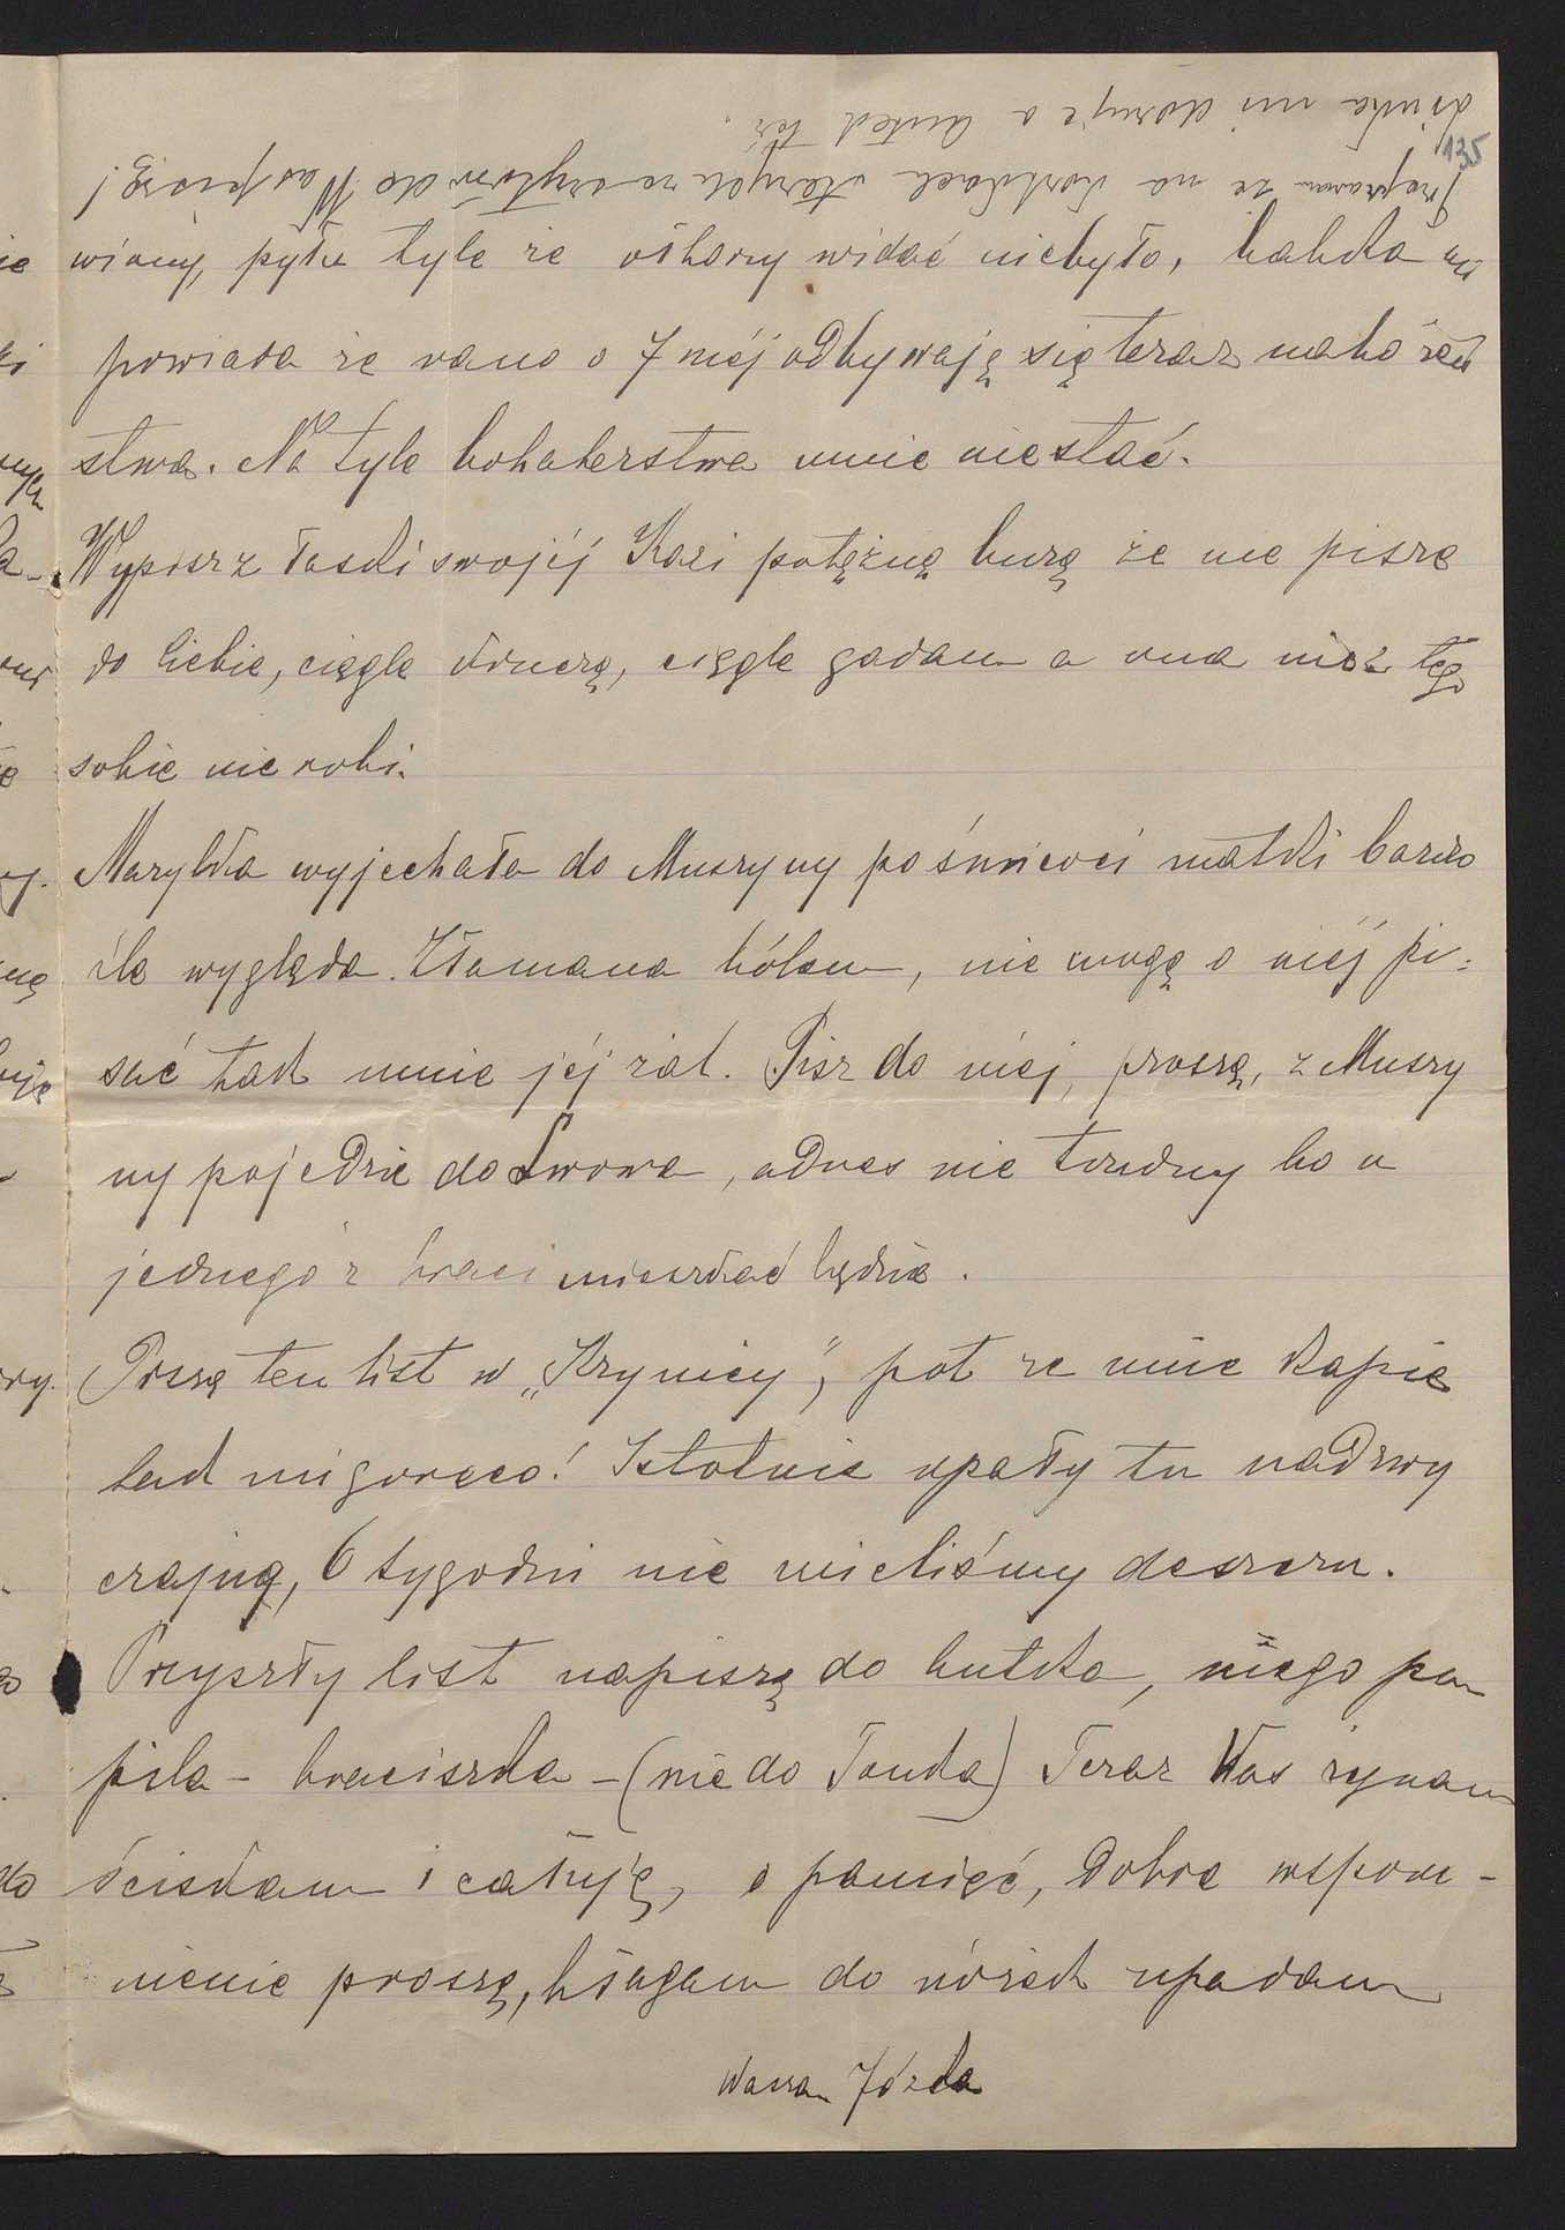 135
Przepraszam że na kartkach starych zeszytów do Was piszę!
dziwka mi daruje a Antek też.
wiony, pyłu tyle że oskory widać niebyło, babka mi
powiada że rano o 7 mej odbywają się teraz nabożeń
stwa. Na tyle bohaterstwa mnie niestać.
Wypisz z łaski swojéj Kazi potężną burę że nie pisze
do Ciebie, ciągle druczę, ciągle gadam a ona nic z tego
sobie nie robi.
Marylka wyjechała do Muszyny po śmierci matki bardzo
źle wygląda. Złamana bólem, nie mogę o niéj pi=
sać tak mnie jéj żal. Pisz do niej, proszę, z Muszy
ny pojedzie do Lwowa, adres nie trudny bo u
jednego z braci mieszkać będzie.
Piszę ten list w „Krynicy”, pot ze mnie kapie
tak mi gorąco! Istotnie upały tu nadzwy
czajne, 6 tygodni nie mieliśmy deszczu.
Przyszły list napiszę do Antka, niego pu
pila – braciszka – (nie do Tonka) Teraz Was żegnam
ściskam i całuję, o pamięć, dobre wspom -
nienie proszę, błagam do nóżek upadam
Wasza Józka